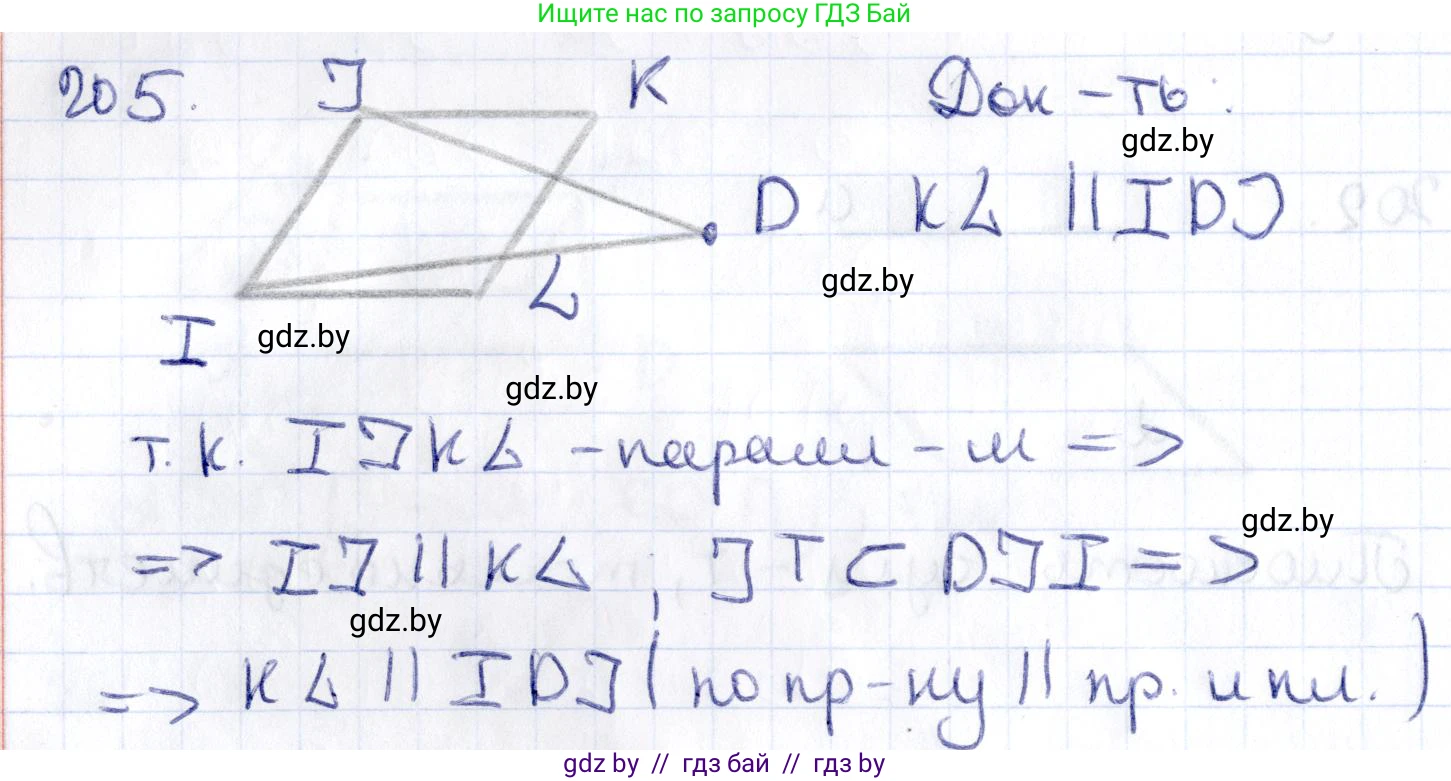 Ищите нас по запросу ГДЗ Бай
205. J K Док-ть:
gdz.by
D KL || IDJ
gdz.by
L
I gdz.by
gdz.by
т.к. IJKL - паралл-м =>
gdz.by
=> IJ || KL; JI ⊂ DJI =>
gdz.by
=> KL || IDJ (по пр-ку || пр. и пл.)
gdz.by // гдз бай // гдз by